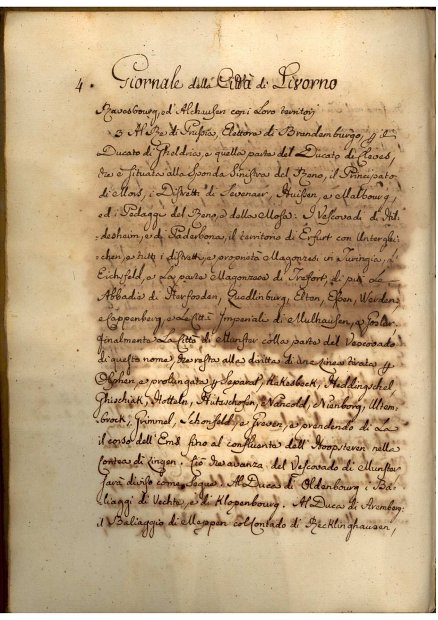 4. Giornale della Città di Livorno
Ravesbourg, ed Alchausen con i Loro territorj
3 Al Re di Prussia, Elettore di Brandemburgo, p il
Ducato di Gheldria, e quella parte del Ducato di Cleves,
che è situata alla sponda sinistra del Reno, il Principato
di Mors, i Distretti di Sevenaer, Huissen, e Malbourg,
ed i Pedaggi del Reno, e della Mosa: I Vescovadi di Hil
desheim, e di Paderbona, il territorio di Erfurt con Unterglei
chen, e tutti i distretti, e proprietà Magonzesi in Turingia, l'
Eichsfeld, e la parte Magonzese di Treffort; di più Le
Abbadie di Herforden, Quedlinburg, Elten, Essen, Werden,
e Cappenberg e Le Città Imperiale di Mulhausen, e Goslar.
finalmente La Città di Munster colla parte del Vescovado
di questo nome, che resta alla dritta di una Linea tirata p
Olphen, e prolungata p Seperad, Kukesbeck, Heddingschel,
Ghischink, Notteln, Hutzschofen, Nancold, Nienborg, Uttem
brock, Grimmel, Schonfeld, e Greven, e prendendo di La
il corso dell'Ems fino al confluente dell'Hoopsteren nella
Contea di Lingen. Ciò che avanza del Vescovado di Munster
sarà diviso come segue. Al Duca di Oldenbourg i Ba
liaggi di Vechte, e di Klopenbourg. Al Duca di Aremberg
il Baliaggio di Meppen col Contado di Recklinghausen,